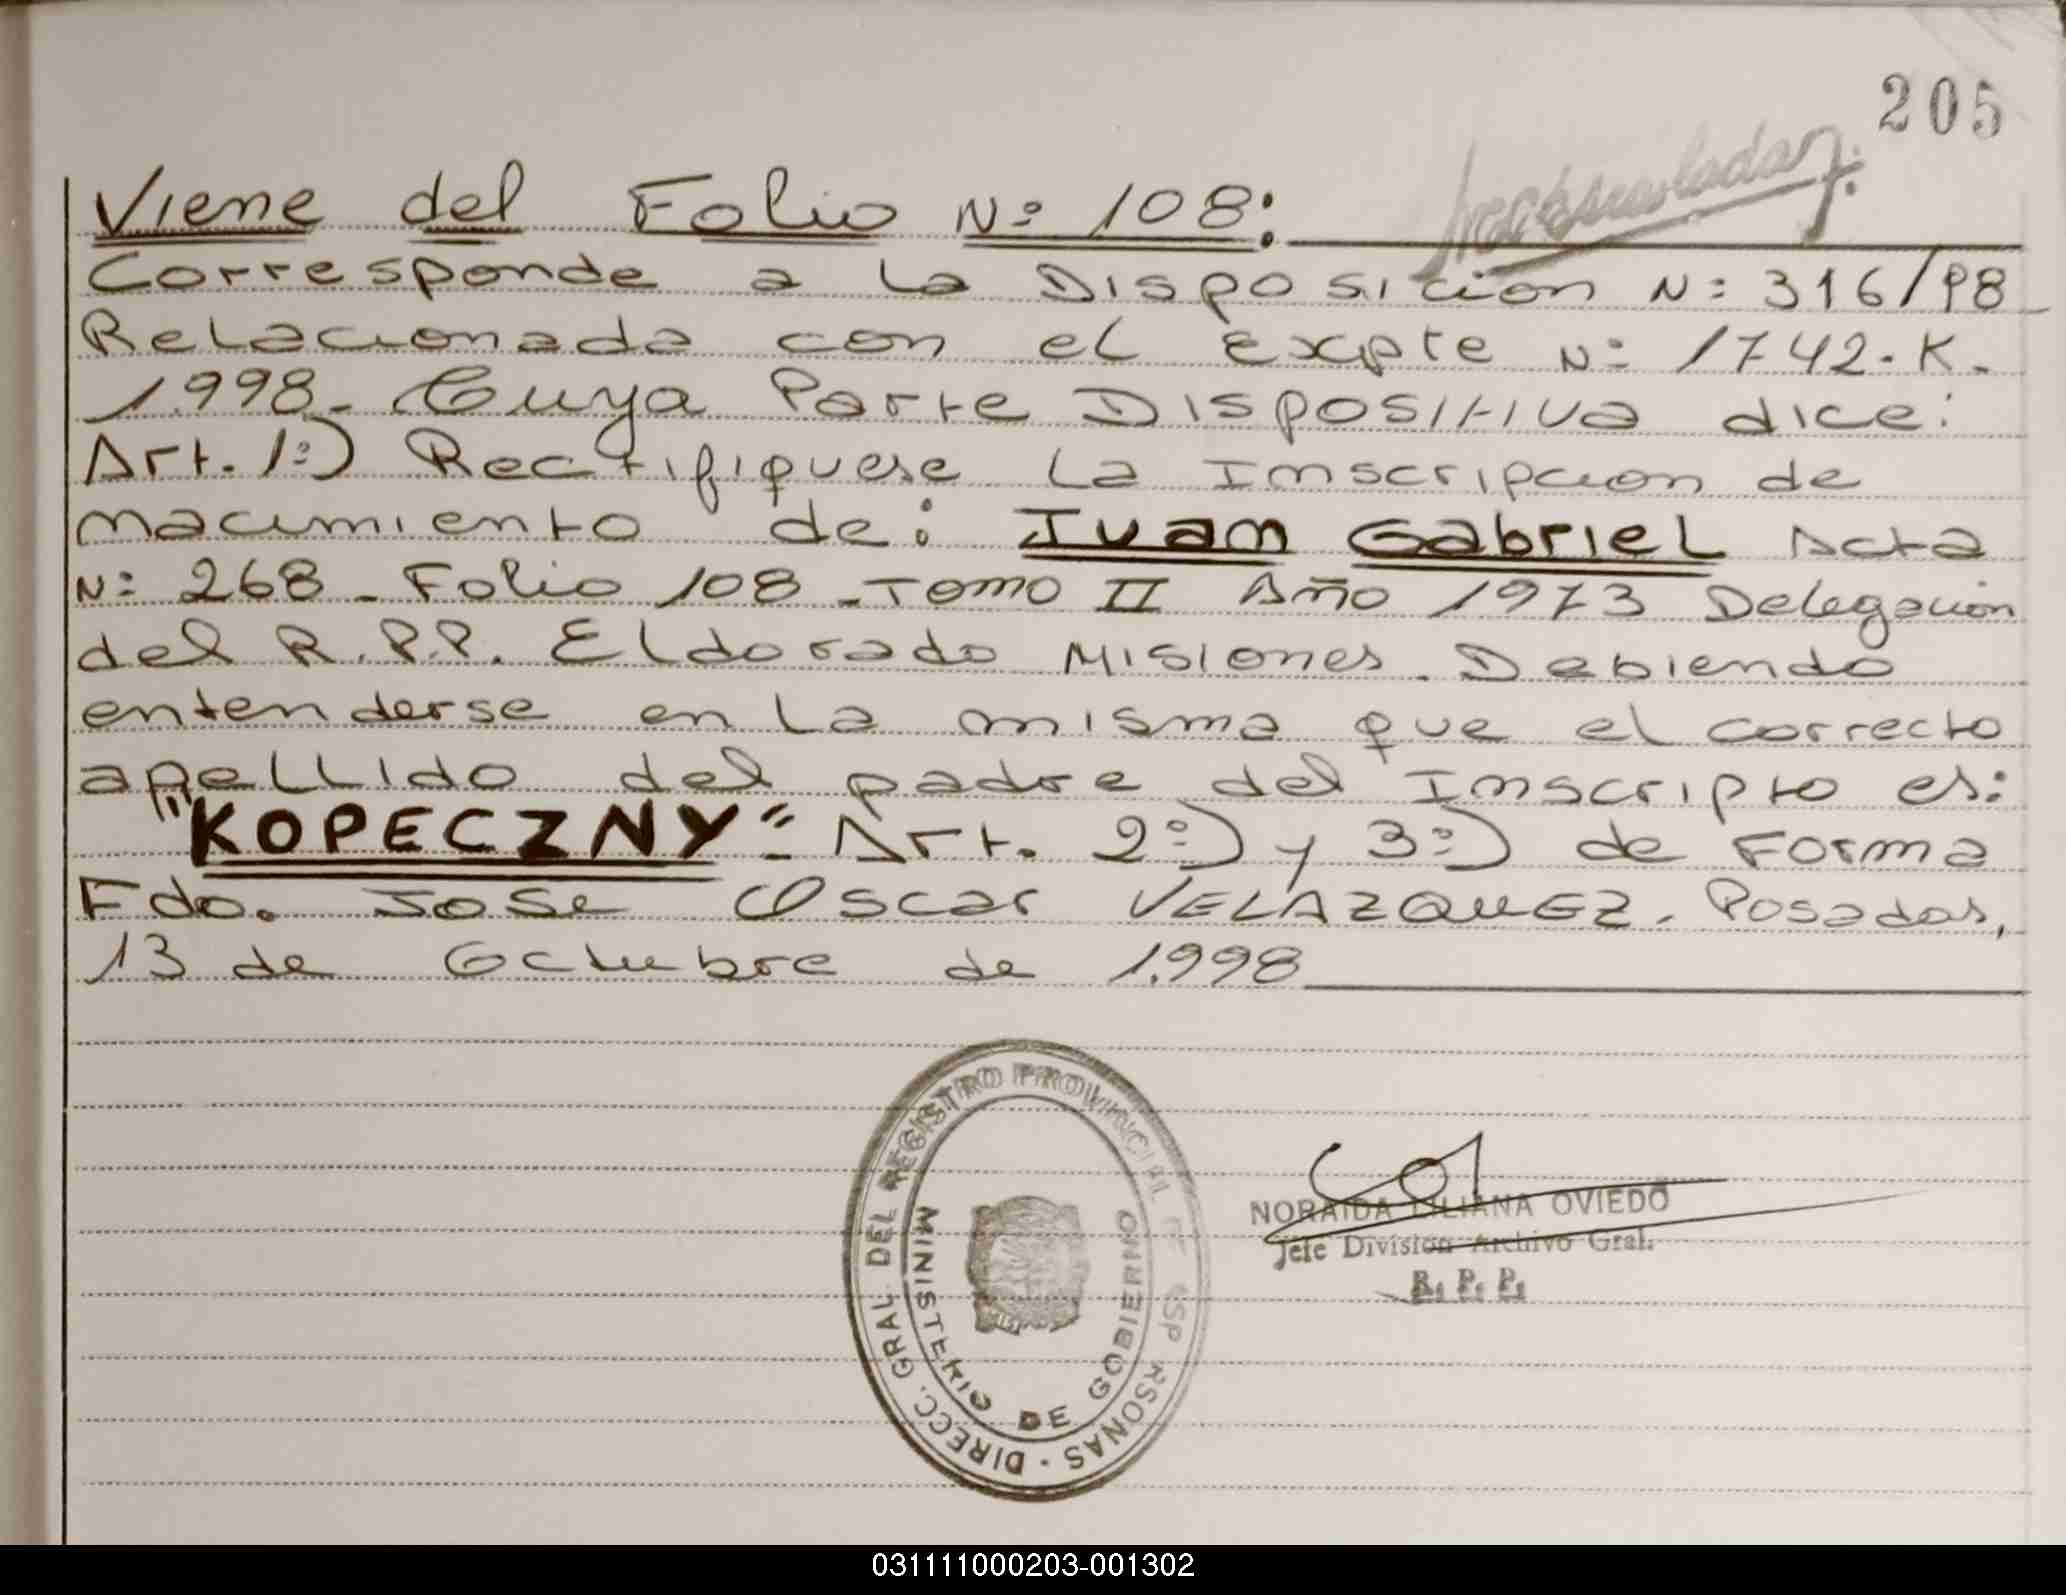 205
Viene del Folio Nº 108:
Corresponde a la Disposicion Nº 316/98
Relacionada con el Expte Nº 1742-K-
1.998- Cuya Parte Dispositiva dice:
Art. 1º) Rectifiquese la Inscripcion de
nacimiento de: Juan Gabriel Acta
Nº 268 - Folio 108 - Tomo II Año 1973 Delegacion
del R.P.P. Eldorado Misiones. Debiendo
entenderse en la misma que el correcto
apellido del padre del Inscripto es:
"KOPECZNY" Art. 2º) y 3º) de Forma
Fdo. Jose Oscar VELAZQUEZ. Posadas,
13 de Octubre de 1.998
DIRECC. GRAL DEL REGISTRO PROVINCIAL
MINISTERIO DE GOBIERNO
NORAIDA LILIANA OVIEDO
Jefe Division Archivo Gral.
R. P. P.
031111000203-001302